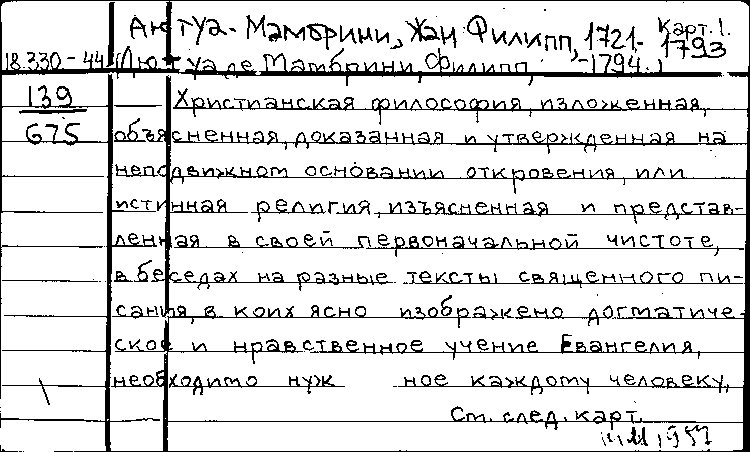 Дютуа-Мамбрини, Жан Филипп, 1721- Карт. 1.
1793
18.330-44 (Дютуа де Мамбрини, Филипп, -1794.)
139
675
Христианская философия, изложенная,
объясненная, доказанная и утвержденная на
неподвижном основании откровения, или
истинная религия, изъясненная и представ-
ленная в своей первоначальной чистоте,
в беседах на разные тексты священного пи-
сания, в коих ясно изображено догматиче-
ское и нравственное учение Евангелия,
необходимо нуж ное каждому человеку,
См. след. карт.